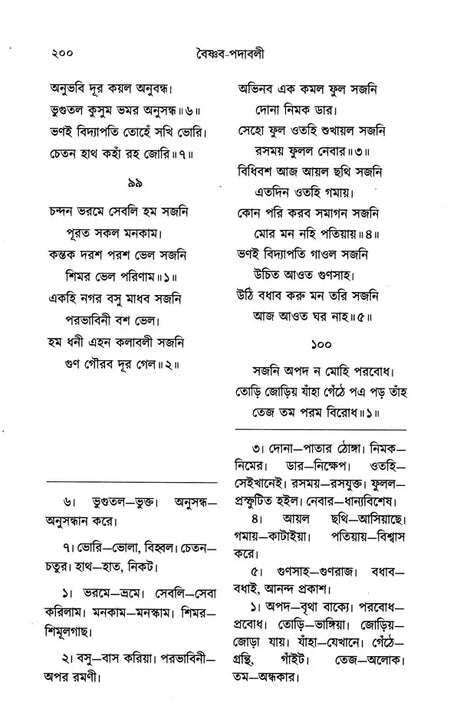 ২০০
বৈষ্ণব-পদাবলী
অনুভবি দূর কয়ল অনুবন্ধ।
ভুগুতল কুসুম ভমর অনুসন্ধ॥৬॥
ভণই বিদ্যাপতি তোহেঁ সখি ভোরি।
চেতন হাথ কহাঁ রহ জোরি॥৭॥
৯৯
চন্দন ভরমে সেবলি হম সজনি
পূরত সকল মনকাম।
কন্তক দরশ পরশ ভেল সজনি
শিমর ভেল পরিণাম॥১॥
একহি নগর বসু মাধব সজনি
পরভাবিনী বশ ভেল।
হম ধনী এহন কলাবলী সজনি
গুণ গৌরব দূর গেল॥২॥
৬। ভুগুতল—ভুক্ত। অনুসন্ধ—
অনুসন্ধান করে।
৭। ভোরি—ভোলা, বিহ্বল। চেতন—
চতুর। হাথ—হাত, নিকট।
১। ভরমে—ভ্রমে। সেবলি—সেবা
করিলাম। মনকাম—মনস্কাম। শিমর—
শিমূলগাছ।
২। বসু—বাস করিয়া। পরভাবিনী—
অপর রমণী।
অভিনব এক কমল ফুল সজনি
দোনা নিমক ডার।
সেহো ফুল ওতহি শুখায়ল সজনি
রসময় ফুলল নেবার॥৩॥
বিধিবশ আজ আয়ল ছথি সজনি
এতদিন ওতহি গমায়।
কোন পরি করব সমাগন সজনি
মোর মন নহি পতিয়ায়॥৪॥
ভণই বিদ্যাপতি গাওল সজনি
উচিত আওত গুণসাহ।
উঠি বধাব করু মন তরি সজনি
আজ আওত ঘর নাহ॥৫॥
১০০
সজনি অপদ ন মোহি পরবোধ।
তোড়ি জোড়িয় যাঁহা গেঁঠে পএ পড় তাঁহ
তেজ তম পরম বিরোধ॥১॥
৩। দোনা—পাতার ঠোঙ্গা। নিমক—
নিমের। ডার—নিক্ষেপ। ওতহি—
সেইখানেই। রসময়—রসযুক্ত। ফুলল—
প্রস্ফুটিত হইল। নেবার—ধান্যবিশেষ।
৪। আয়ল ছথি—আসিয়াছে।
গমায়—কাটাইয়া। পতিয়ায়—বিশ্বাস
করে।
৫। গুণসাহ—গুণরাজ। বধাব—
বধাই, আনন্দ প্রকাশ।
১। অপদ—বৃথা বাক্যে। পরবোধ—
প্রবোধ। তোড়ি—ভাঙ্গিয়া। জোড়িয়—
জোড়া যায়। যাঁহা—যেখানে। গেঁঠে—
গ্রন্থি, গাঁইট। তেজ—অলোক।
তম—অন্ধকার।